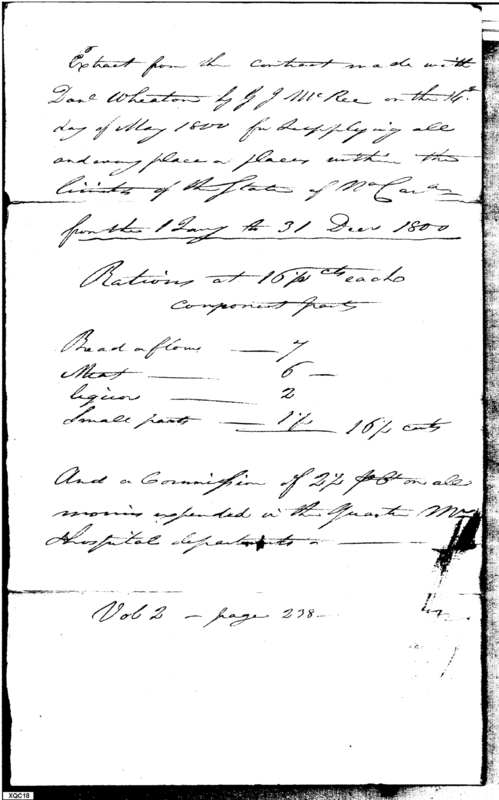 Extract from the contract made with
Danl Wheaton by G J McRee on the 14th
day of May 1800 for Supplying all
and every place or places within the
limits of the State of No Cara
from the 1 Jany to 31 Decr 1800
Rations at 16½ cts each
component parts
Bread or flour — 7
Meat — 6 —
liquor — 2
Small parts — 1½ 16½ cents
And a Commission of 2½ on all
monies expended in the Quarter Mr
Hospital departments —
Vol 2 — page 238 —
XQC18